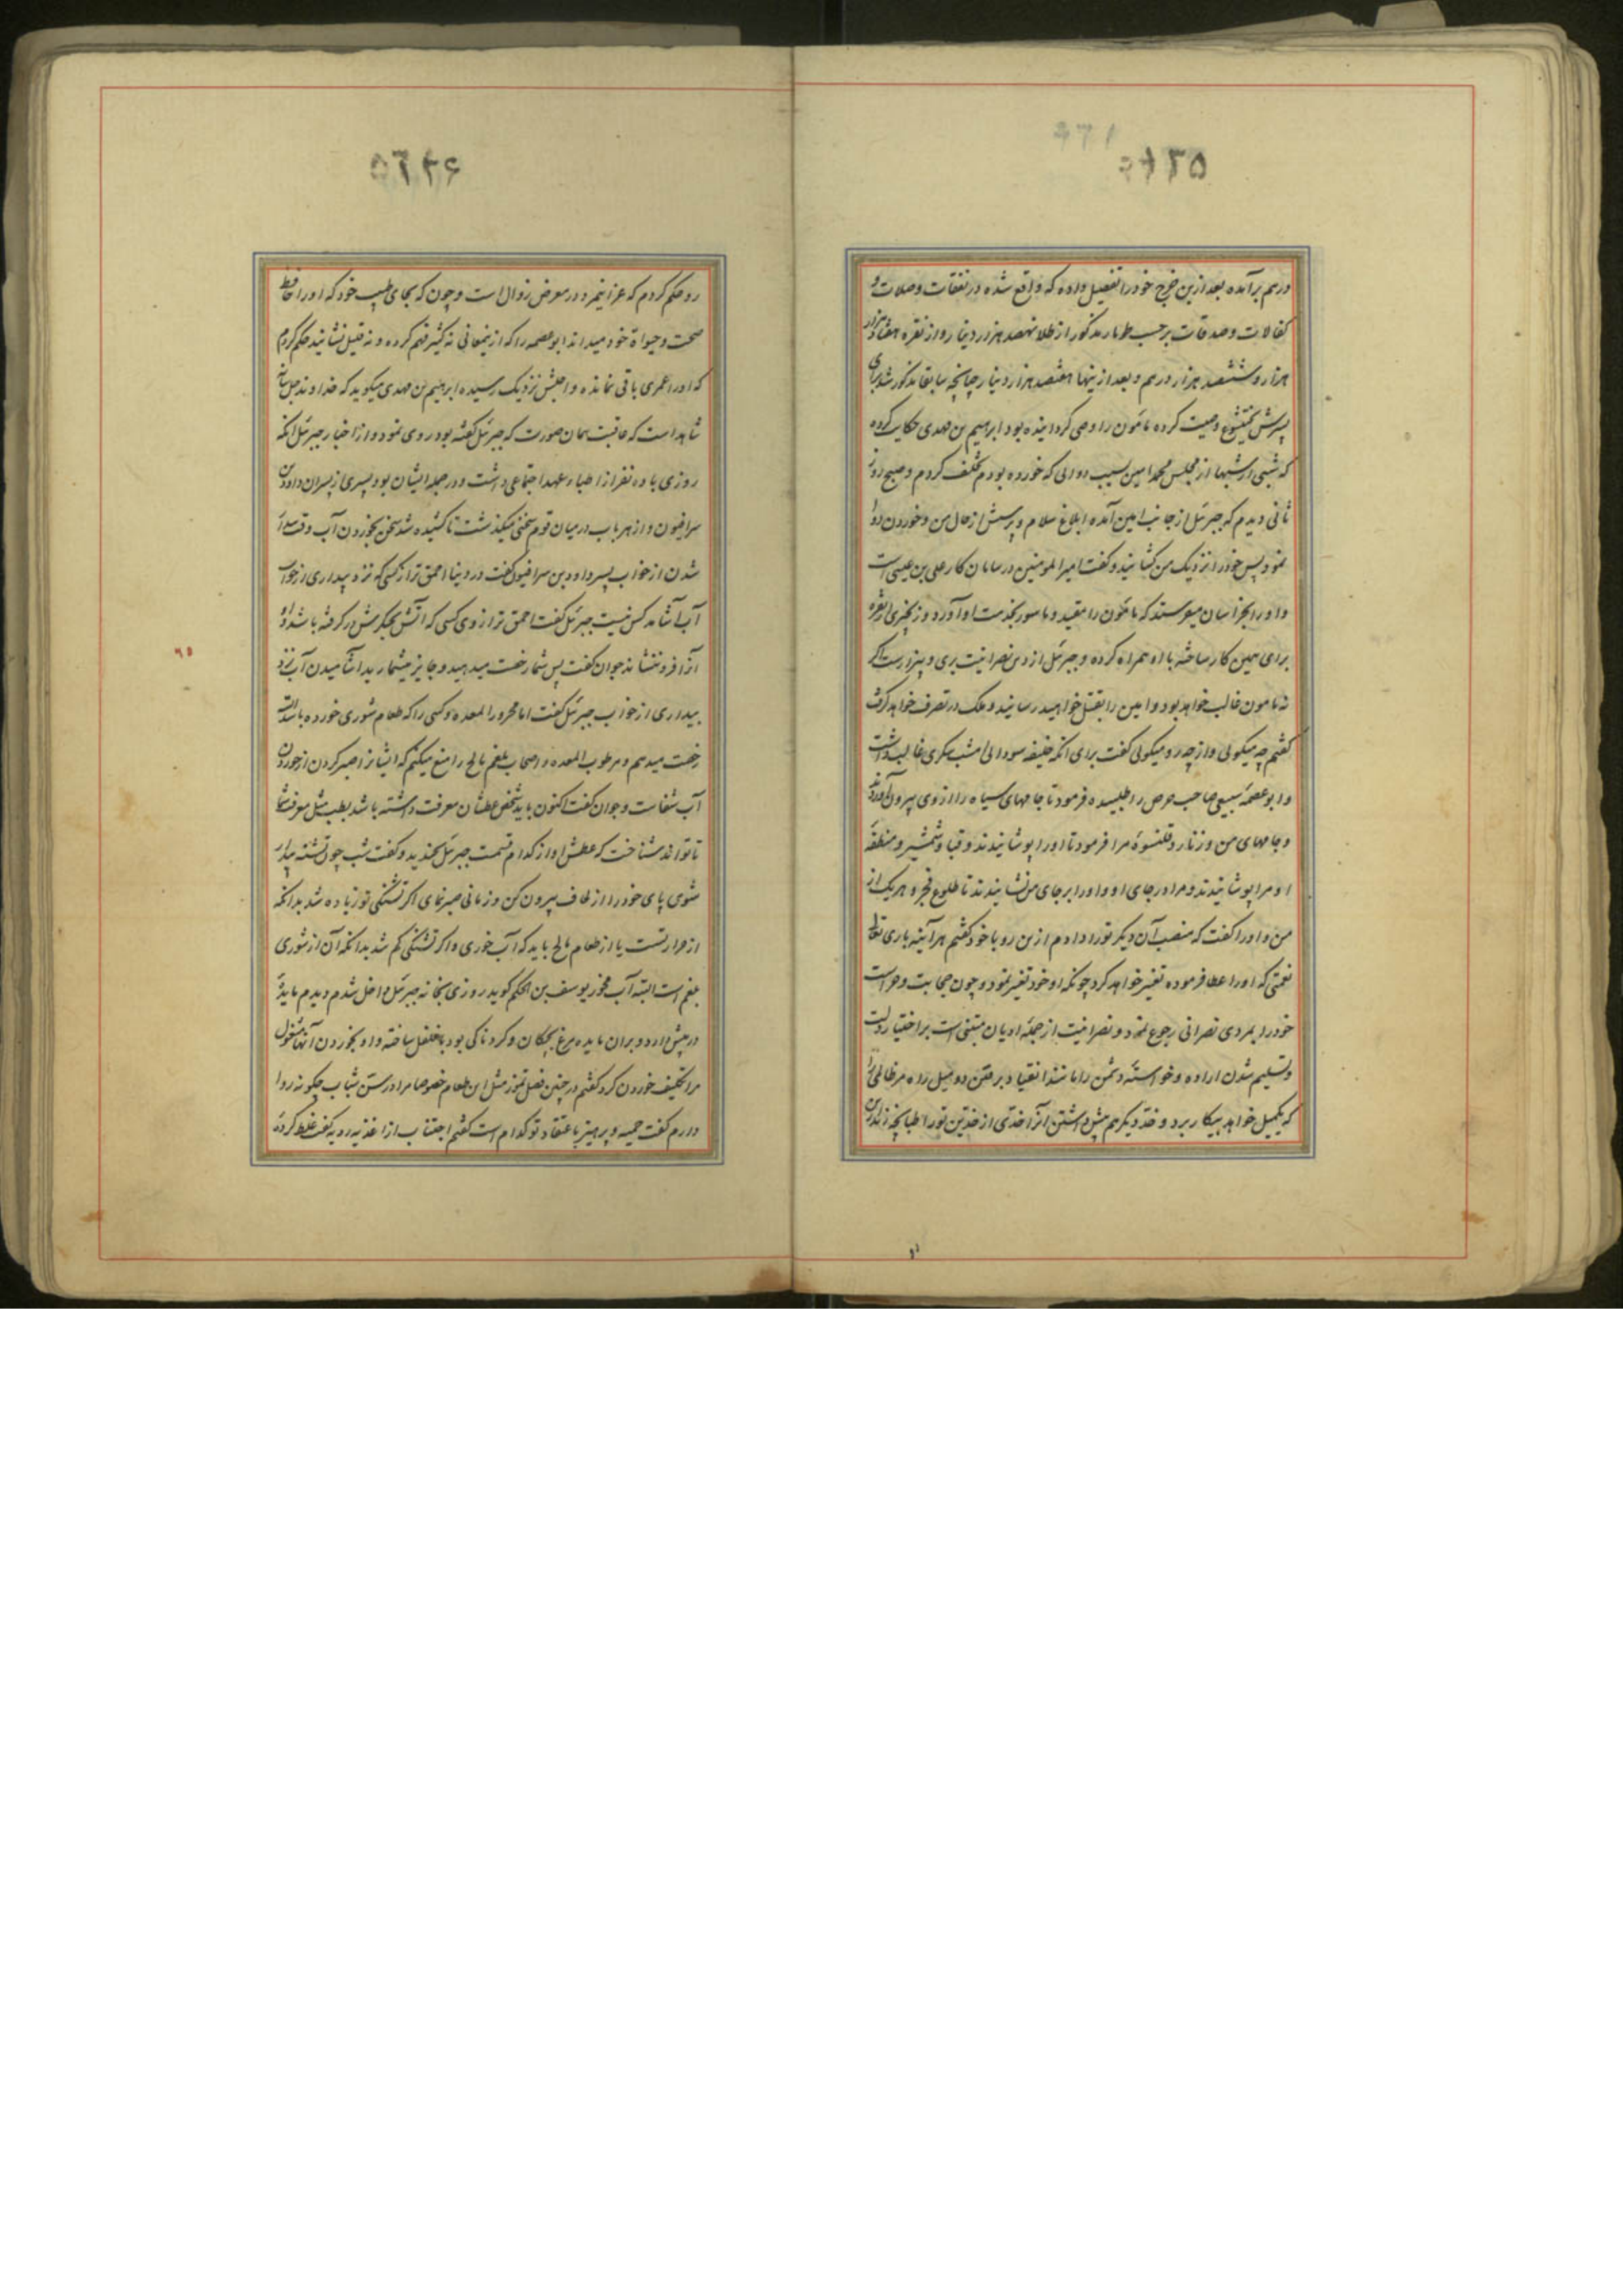 درهم برآمده بعد ازین خرج خود را تفصیل داده که واقع شده در نفقات وصلات و
کفالات وصدقات برحسب طومار مذکور از طلا نهصد هزار دینار و از نقره هفتاد هزار
هزار و ششصد هزار درهم و بعد ازینها هفتصد هزار دینار چنانچه سابقا مذکور شد برای
پسرش بختیشوع وصیت کرده مامون را وصی کردانیده بود ابراهیم بن مهدی حکایت کرده
که شبی از شبها از مجلس محمد امین بسبب دوائی که خورده بودم تخلف کردم و صبح روز
ثانی دیدم که جبرئل از جانب امین آمده ابلاغ سلام و پرسش از حال من و خوردن دوا
نمود پس خود را نزدیک من کشانید و کفت امیر المومنین در سامان کار علی بن عیسی است
و او را بخراسان میفرستد که مامون را مقید و ماسور بخدمت او آورد و زنجیری از نقره
برای همین کار ساخته با او همراه کرده و جبرئل از دین نصرانیت بری و بیزار است اکر
نه مامون غالب خواهد بود و امین را بقتل خواهید رسانید و ملک در تصرف خواهد کرفت
کفتم چه میکوئی و از چه رو میکوئی کفت برای انکه خلیفه سودائی امشب سکری غالب داشت
و ابو عصمه سبیعی صاحب حرص را طلبیده فرمود تا جامهای سیاه را از وی بیرون آوردند
و جامهای من و زنار و قلنسوه مرا فرمود تا او را پوشانیدند و قبا و شمشیر و منطقه
او مرا پوشانیدند و مرا در جای او و او را بر جای من نشانیدند تا طلوع فجر و هر یک از
من و او را کفت که منصب آن دیکر تو را دادم ازین رو با خود کفتم هرآینه باری تعالی
نعمتی که او را عطا فرموده تغییر خواهد کرد چونکه او خود تغییر نمود و چون حجابت و حراست
خود را بمردی نصرانی رجوع نمود و نصرانیت از جمله ادیان مبتنی است بر اختیار ذلت
و تسلیم شدن اراده و خواسته دشمن را مانند انقیاد بر رفتن دو میل راه مر ظالمی را
که یکمیل خواهد بیکار برد و خد دیکر هم پیش داشتن آنرا خدی از خدین تو را طپانچه زند
رو حکم کردم که عز اینمرد در معرض زوال است و چون که بجای طبیب خود که او را حافظ
صحت و حیواة خود میداند ابو عصمه را که ازینمعانی نه کثیر فهم کرده و نه قلیل نشانید حکم کردم
که او را عمری باقی نمانده و اجلش نزدیک رسیده ابراهیم بن مهدی میکوید که خداوند جل شانه
شاهد است که عاقبت بهمان صورت که جبرئل کفته بود روی نمود و از اخبار جبرئل انکه
روزی با ده نفر از اطباء عهد اجتماعی داشت و در جمله ایشان بود پسری از پسران داود بن
سرافیون و از هر باب در میان قوم سخنی میکذشت تا کشیده شد سخن بخوردن آب وقت بیدار
شدن از خواب پسر داود بن سرافیون کفت در دنیا احمق تر از کسی که نزد بیداری از خواب
آب آشامد کس نیست جبرئل کفت احمق تر از وی کسی که آتش بجکرش در کرفته باشد و او
آنرا فرو ننشاند جوان کفت پس شما رخصت میدهید و جایز میشمارید اشامیدن آب نزد
بیداری از خواب جبرئل کفت اما محرور المعده و کسی را که طعام شوری خورده باشد البته
رخصت میدهم و مرطوب المعده و اصحاب بلغم مالح را منع میکنم که ایشانرا صبر کردن از خوردن
آب شفاست و جوان کفت اکنون باید شخص عطشان معرفت داشته باشد بطب مثل معرفت شما
تا تواند شناخت که عطش او از کدام قسمت جبرئل بخندید و کفت شب چون تشنه بیدار
شوی پای خود را از لحاف بیرون کن و زمانی صبر نمای اکر تشنکی تو زیاده شد بدانکه
از حرارتست یا از طعام مالح باید که آب خوری و اکر تشنکی کم شد بدانکه آن از شوری
بلغم است البته آب مخور یوسف بن الحکم کوید روزی بخانه جبرئل داخل شدم دیدم مایده
در پیش دارد و بران مایده مرغ بچکان و کردناکی بود با فلفل ساخته و او بخوردن آنها مشغول
مرا تکلیف خوردن کرد کفتم در چنین فصل تموز مثل این طعام خصوصا مرا در سن شباب چکونه روا
دارم کفت حمیه و پرهیز باعتقاد تو کدام است کفتم اجتناب از اغذیه ردیه کفت غلط کرده